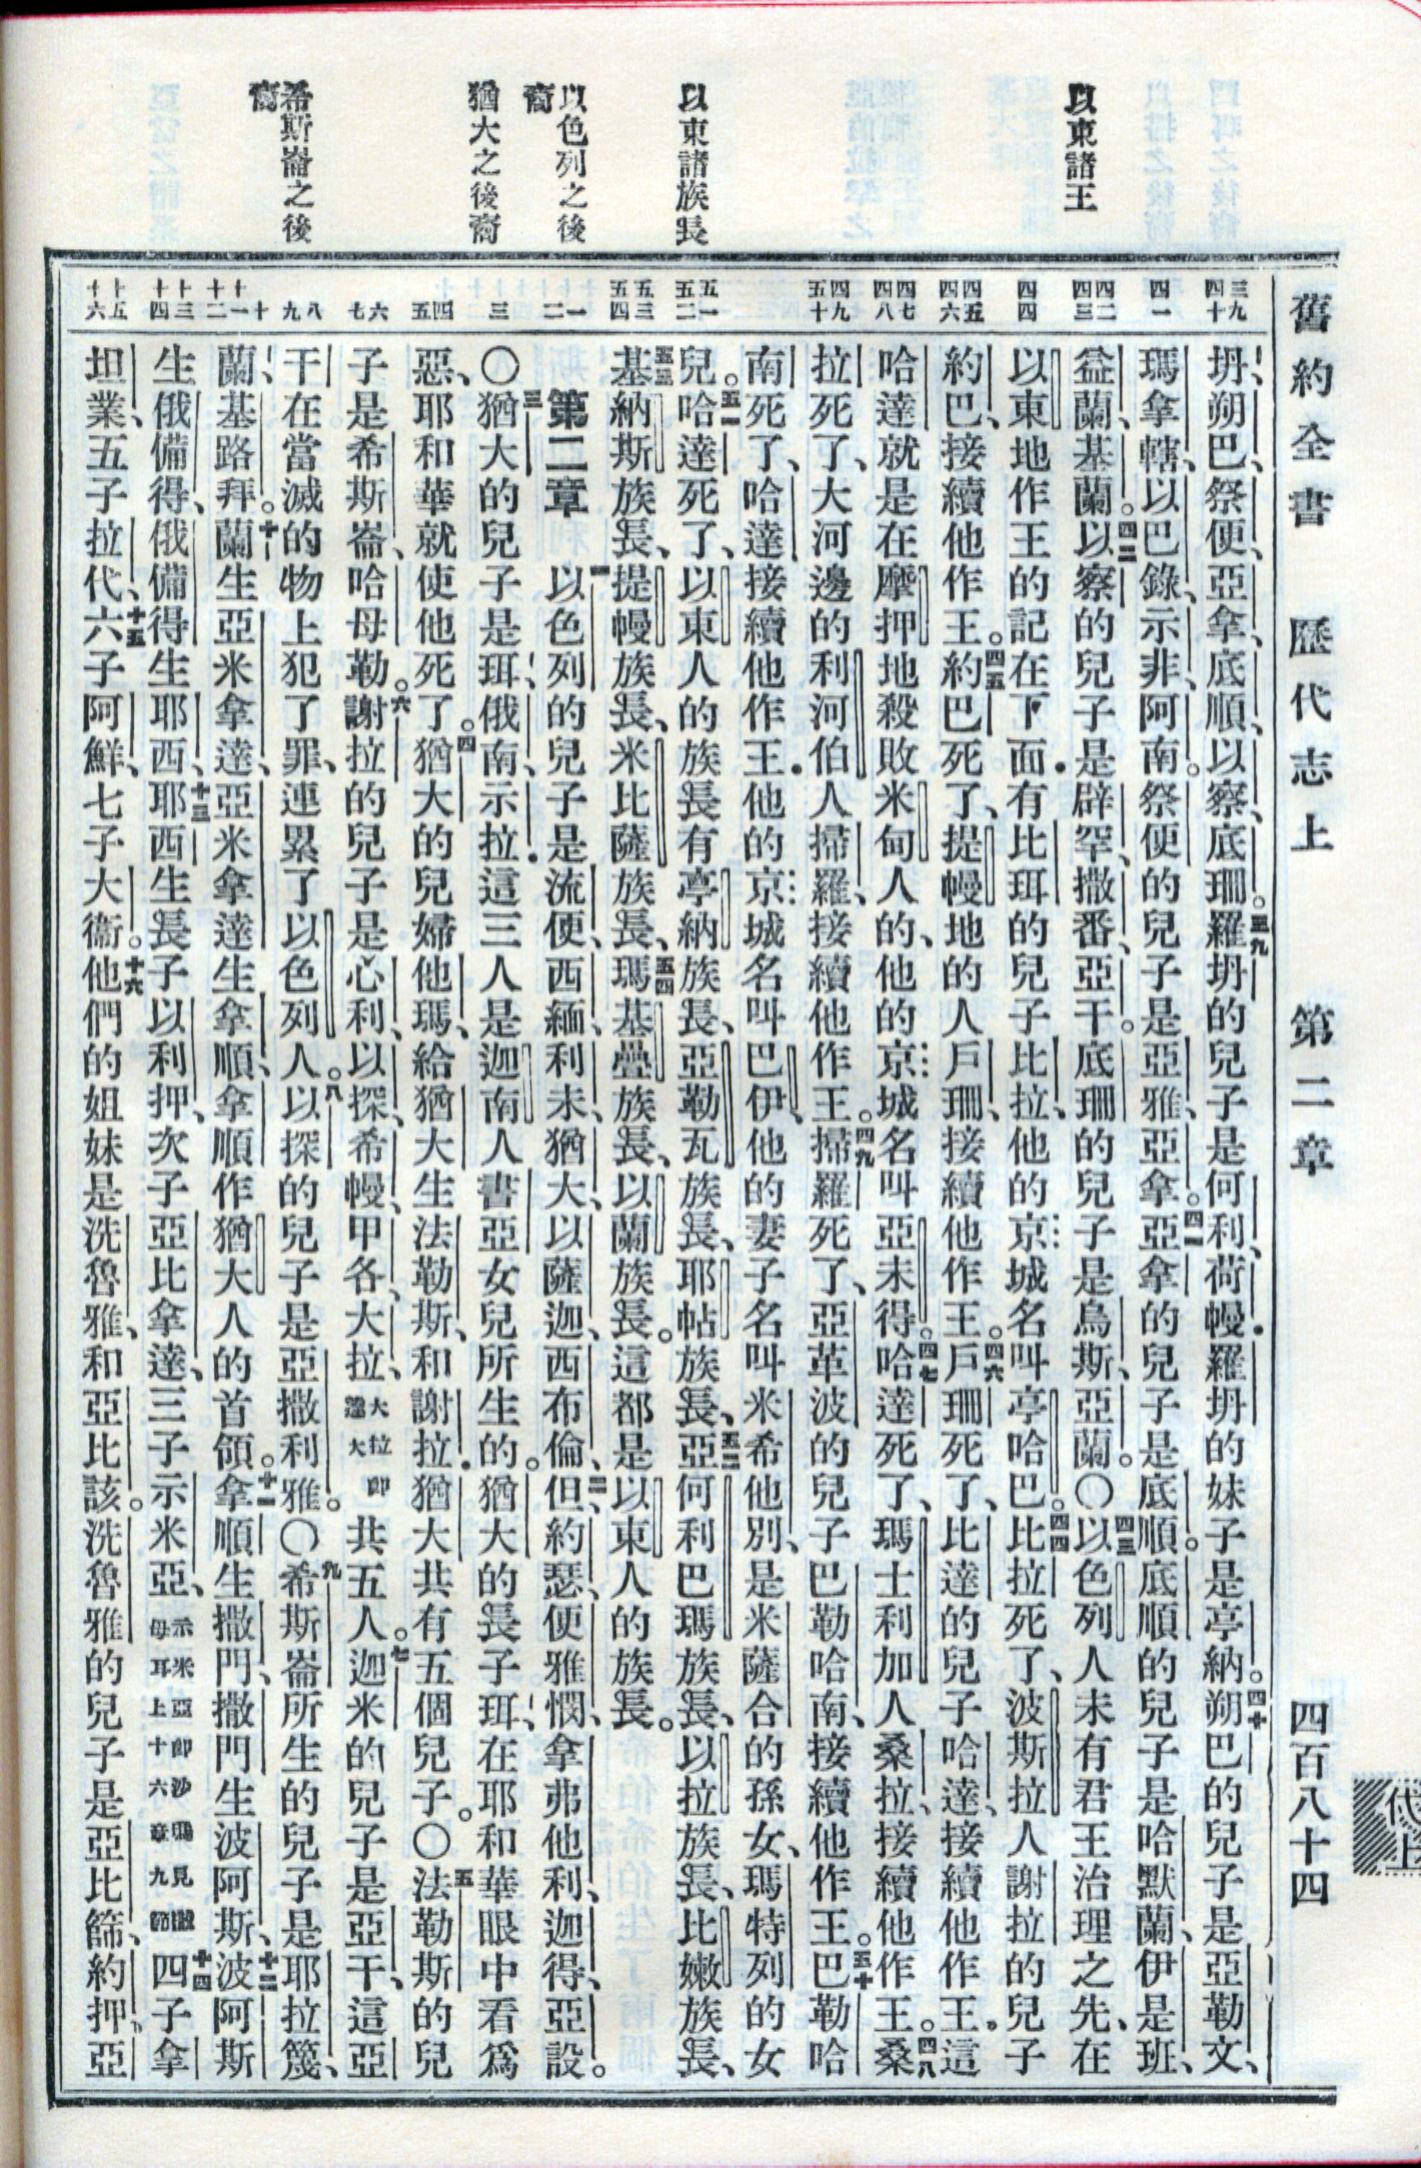 舊約全書 歷代志上 第二章 四百八十四
代上
以東諸王
以東諸族長
以色列之後裔
猶大之後裔
希斯崙之後裔
三九 四十
四一
四二 四三
四四
四五 四六
四七 四八
四九 五十
五一 五二
五三 五四
一 二
三
四 五
六 七
八 九
十 十一 十二
十三 十四
十五 十六
坍、朔巴、祭便、亞拿、底順、以察、底珊。三九羅坍的兒子是何利、荷幔．羅坍的妹子是亭納。四十朔巴的兒子是亞勒文、
瑪拿轄、以巴錄、示非、阿南。祭便的兒子是亞雅、亞拿。四一亞拿的兒子是底順。底順的兒子是哈默蘭、伊是班、
益蘭、基蘭。四二以察的兒子是辟罕、撒番、亞干。底珊的兒子是烏斯、亞蘭。〇四三以色列人未有君王治理之先、在
以東地作王的記在下面．有比珥的兒子比拉、他的京城名叫亭哈巴。四四比拉死了、波斯拉人謝拉的兒子
約巴、接續他作王。四五約巴死了、提幔地的人戶珊、接續他作王。四六戶珊死了、比達的兒子哈達、接續他作王．這
哈達就是在摩押地殺敗米甸人的、他的京城名叫亞未得。四七哈達死了、瑪士利加人桑拉、接續他作王。四八桑
拉死了、大河邊的利河伯人掃羅、接續他作王。四九掃羅死了、亞革波的兒子巴勒哈南、接續他作王。五十巴勒哈
南死了、哈達接續他作王．他的京城名叫巴伊、他的妻子名叫米希他別、是米薩合的孫女、瑪特列的女
兒。五一哈達死了、以東人的族長有亭納族長、亞勒瓦族長、耶帖族長、五二亞何利巴瑪族長、以拉族長、比嫩族長、
五三基納斯族長、提幔族長、米比薩族長、五四瑪基疊族長、以蘭族長。這都是以東人的族長。
第二章 一以色列的兒子是流便、西緬、利未、猶大、以薩迦、西布倫、二但、約瑟、便雅憫、拿弗他利、迦得、亞設。
〇三猶大的兒子是珥、俄南、示拉．這三人是迦南人書亞女兒所生的。猶大的長子珥、在耶和華眼中看爲
惡、耶和華就使他死了。四猶大的兒婦他瑪、給猶大生法勒斯、和謝拉．猶大共有五個兒子。〇五法勒斯的兒
子是希斯崙、哈母勒。六謝拉的兒子是心利、以探、希幔、甲各、大拉、大拉卽達大共五人。七迦米的兒子是亞干、這亞
干在當滅的物上犯了罪、連累了以色列人。八以探的兒子是亞撒利雅。〇九希斯崙所生的兒子是耶拉篾、
蘭、基路拜。十蘭生亞米拿達、亞米拿達生拿順、拿順作猶大人的首領。十一拿順生撒門、撒門生波阿斯、十二波阿斯
生俄備得、俄備得生耶西、十三耶西生長子以利押、次子亞比拿達、三子示米亞、示米亞卽沙瑪見撒母耳上十六章九節十四四子拿
坦業、五子拉代、十五六子阿鮮、七子大衞。十六他們的姐妹是洗魯雅、和亞比該。洗魯雅的兒子是亞比篩、約押、亞